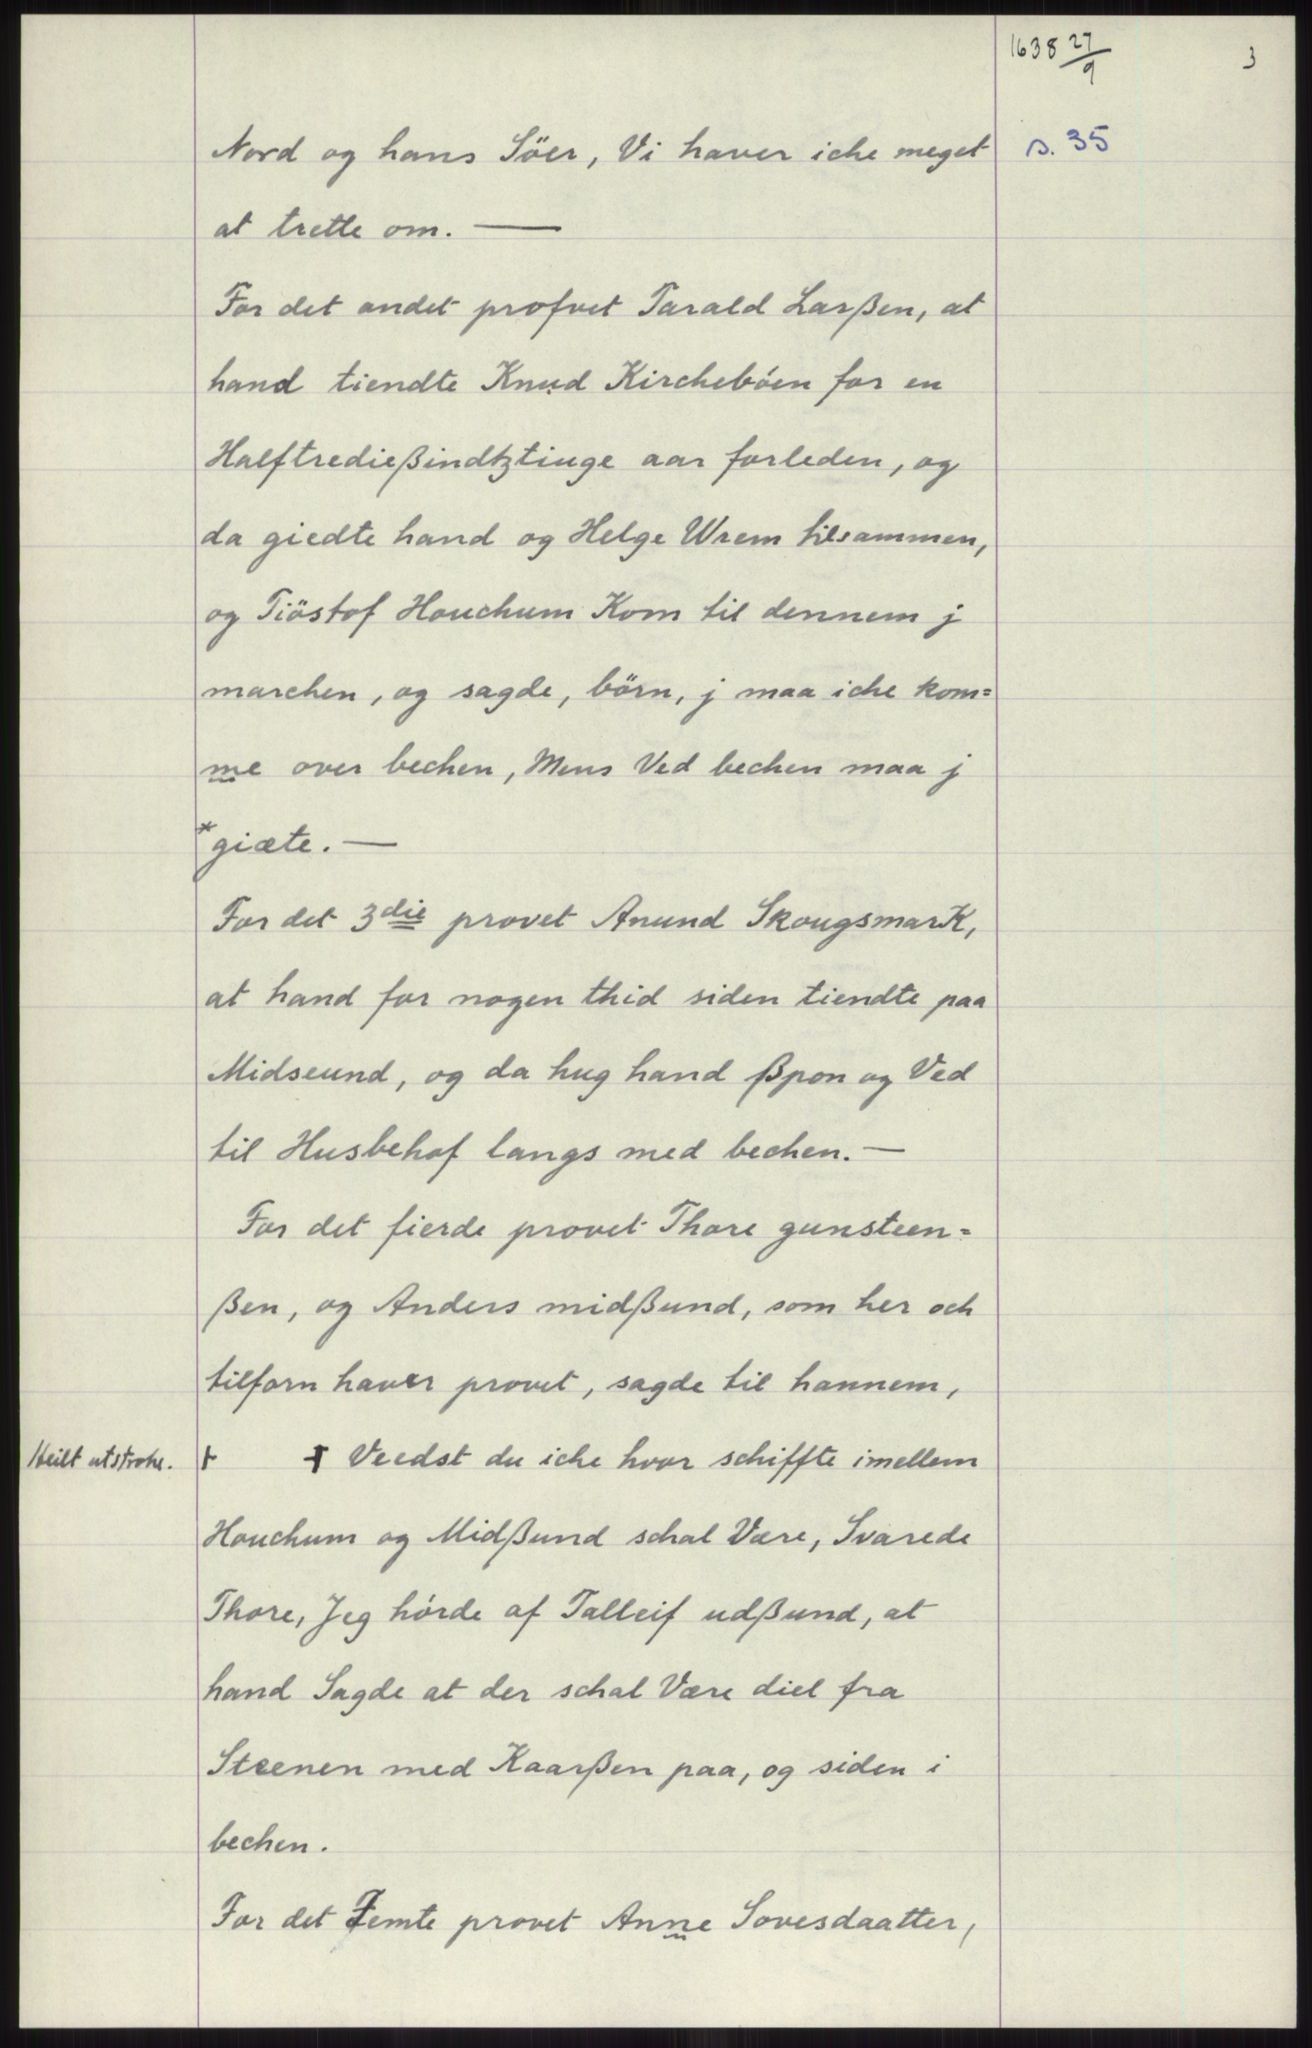 1638 27/9
3
s. 35
Nord og hans Söer, Vi haver iche meget
at trette om. —
For det andet profvet Tarald Larßen, at
hand tiendte Knud Kirchebóen for en
Halftredießindtztiuge aar forleden, og
da giedte hand og Helge Wrem tilsammen,
og Tiöstof Houchum Kom til dennem j
marchen, og sagde, börn, j maa iche kom=
me over bechen, Mens Ved bechen maa j
*giæte. —
For det 3die provet Anund SkougsmarK,
at hand for nogen thid siden tiendte paa
Midseund, og da hug hand ßpon og Ved
til Husbehof langs med bechen. —
For det fierde provet Thore gunsteen=
ßen, og Anders midßund, som her och
tilforn haver provet, sagde til hannem,
Heilt utstroke. + + Veedst du iche hvor schiffte imellem
Houchum og Midßund schal Være, Svarede
Thore, Jeg hórde af Talleif udßund, at
hand Sagde at der schal Være diel fra
Steenen med Kaarßen paa, og siden i
bechen.
For det Femte provet Anne Sovesdaatter,